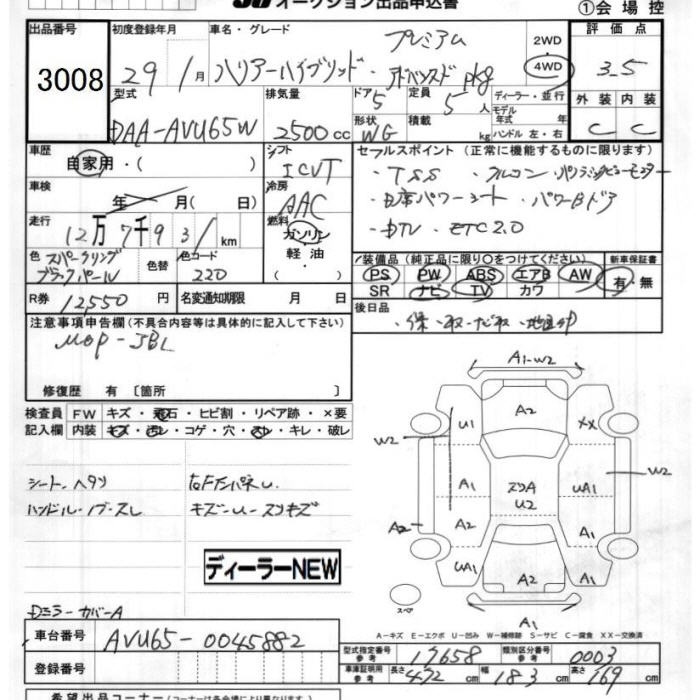 オークション出品申込書
①会場控
出品番号
3008
初度登録年月
29年 1月
車名・グレード
ハリアーハイブリッド・プレミアム
アドバンスド pkg
2WD
4WD
評価点
3.5
型式
DAA-AVU65W
排気量
2500cc
ドア 5
形状 WG
定員 5人
積載 kg
ディーラー・並行
モデル年式 年
ハンドル 左・右
外装 内装
C C
車歴
自家用・( )
シフト
ICVT
セールスポイント (正常に機能するものに限ります)
・TSS ・フルコン ・パノラミックビューモニター
・D席パワーシート ・パワーBドア
・DTV ・ETC2.0
車検
年 月( 日)
冷房
AAC
走行
12万7千931km
燃料
ガソリン
軽油
・( )
色 スパークリングブラックパール
色替
色コード
220
装備品 (純正品に限り○をつけてください)
PS PW ABS エアB AW
SR ナビ TV カワ
新車保証書
有・無
R券 12,550円
名変通知期限 月 日
後日品
・保・取・ナビ取
注意事項申告欄 (不具合内容等は具体的に記入して下さい)
MOP-JBL
修復歴 有 [箇所 ]
検査員記入欄
FW キズ・飛石・ヒビ割・リペア跡・×要
内装 キズ・汚レ・コゲ・穴・スレ・キレ・破レ
シート・ヘタリ
ハンドル・ノブ・スレ
右F下パネル
キズ-U-スリキズ
ディーラーNEW
Dミラーカバー-A
A1-W2
A2
U1
XX
W2
W2
A1
スリA
U2
UA1
A2
A2
A1
UA1
A2
A1
スペア
A1
A-キズ E-エクボ U-凹み W-補修跡 S-サビ C-腐食 XX-交換済
車台番号
AVU65-0045882
登録番号
型式指定番号 参考 17658
類別区分番号 参考 0003
車庫証明用 参考 長さ 472cm 幅 183cm 高さ 169cm
希望出品コーナー